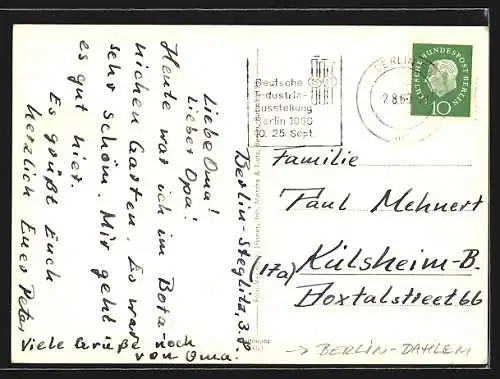 Berlin-Steglitz, 3.8.
Liebe Oma!
Lieber Opa!
Heute war ich im Bota-
nichen Garten. Es war
sehr schön. Mir geht
es gut hier.
Es grüßt Euch
herzlich Euer Peter
Viele Grüße noch
von Oma!
Deutsche
Industrie-
Ausstellung
Berlin 1960
10. 25. Sept.
BERLIN
DEUTSCHE BUNDESPOST BERLIN
10
Familie
Paul Mehnert
(17a) Külsheim-B.
Boxtalstreet 66
→ BERLIN-DAHLEM